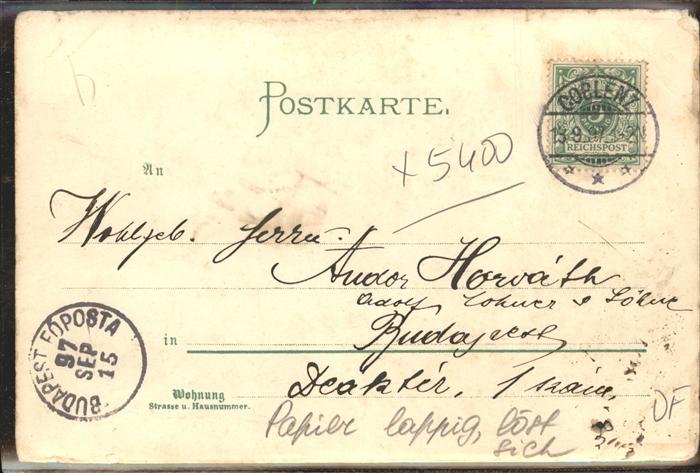 POSTKARTE.
COBLENZ
13 9 97
REICHSPOST
+5400
An
Wohlgeb. Herrn
Andor Horváth
Adolf Lohner & Söhne
in Budapest
Deáktér, 1 szám,
BUDAPEST FŐPOSTA
97
SEP
15
Wohnung
Strasse u. Hausnummer.
Papier lappig, löst
sich
DF